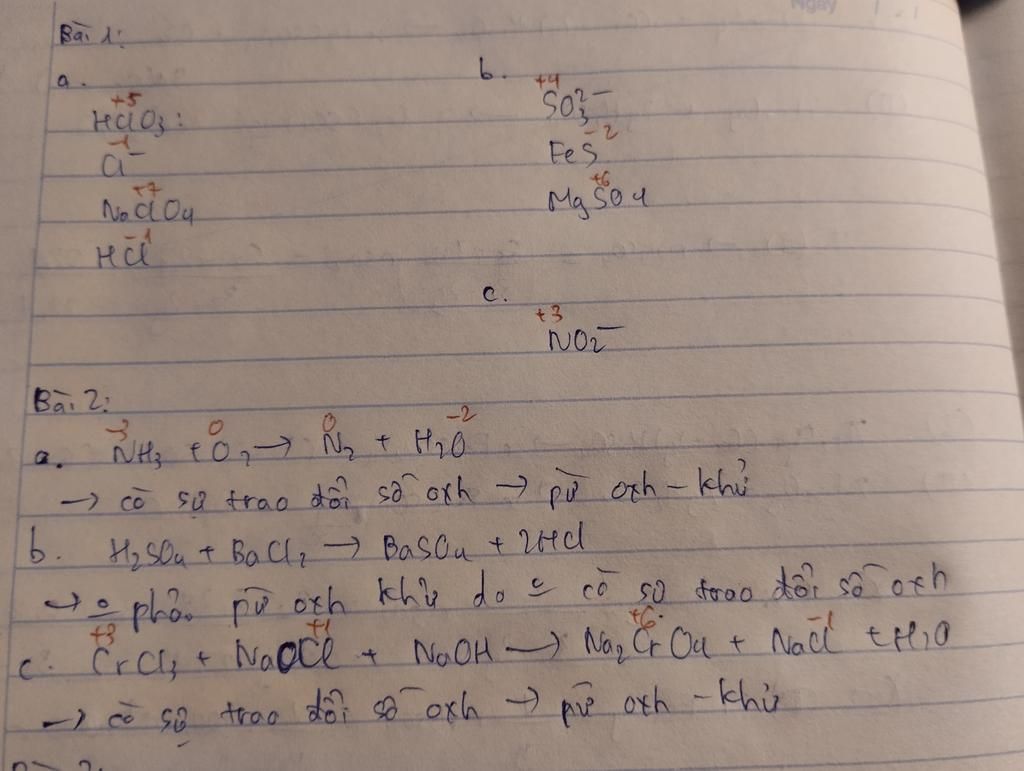 Ngày
Bài 1:
a.
+5
HClO₃:
-1
Cl⁻
+7
NaClO₄
-1
HCl
b.
+4
SO₃²⁻
-2
FeS
+6
MgSO4
c.
+3
NO₂⁻
Bài 2:
-3 0 0 -2
a. NH₃ + O₂ → N₂ + H₂O
→ có sự trao đổi số oxh → pứ oxh - khử
b. H₂SO₄ + BaCl₂ → BaSO₄ + 2HCl
→ phải pứ oxh khử do có sự trao đổi số oxh
+3 +1 +6 -1
c. CrCl₃ + NaOCl + NaOH → Na₂CrO₄ + NaCl + H₂O
→ có sự trao đổi số oxh → pứ oxh - khử